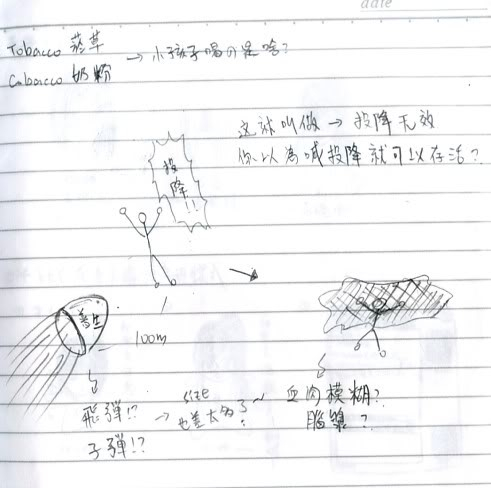 date
Tobacco 菸草 → 小孩子喝的是啥?
Cabacco 奶粉
这就叫做 → 投降无效
你以為喊投降就可以存活?
投降!!
100m
飛彈!? → size
也差太多了~
?
子彈!?
血肉模糊?
腦漿?